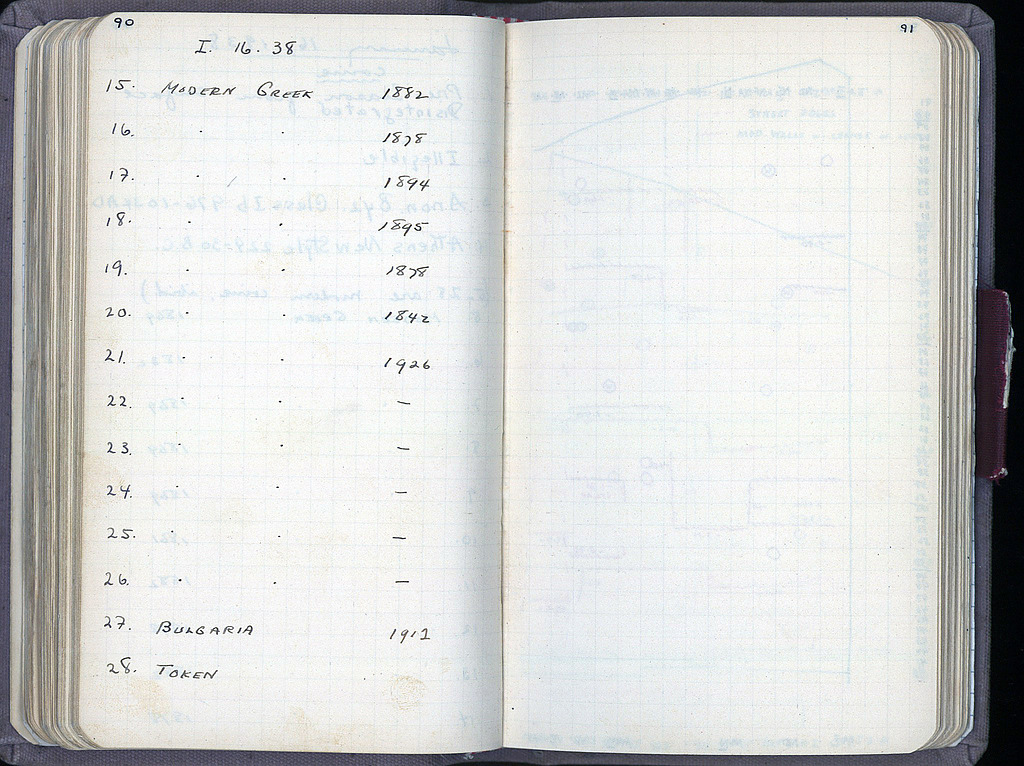 90
I. 16. 38
15. MODERN GREEK 1882
16. · · 1878
17. · · 1894
18. · · 1895
19. · · 1878
20. · · 1842
21. · · 1926
22. · · —
23. · · —
24. · · —
25. · · —
26. · · —
27. BULGARIA 1912
28. TOKEN
91